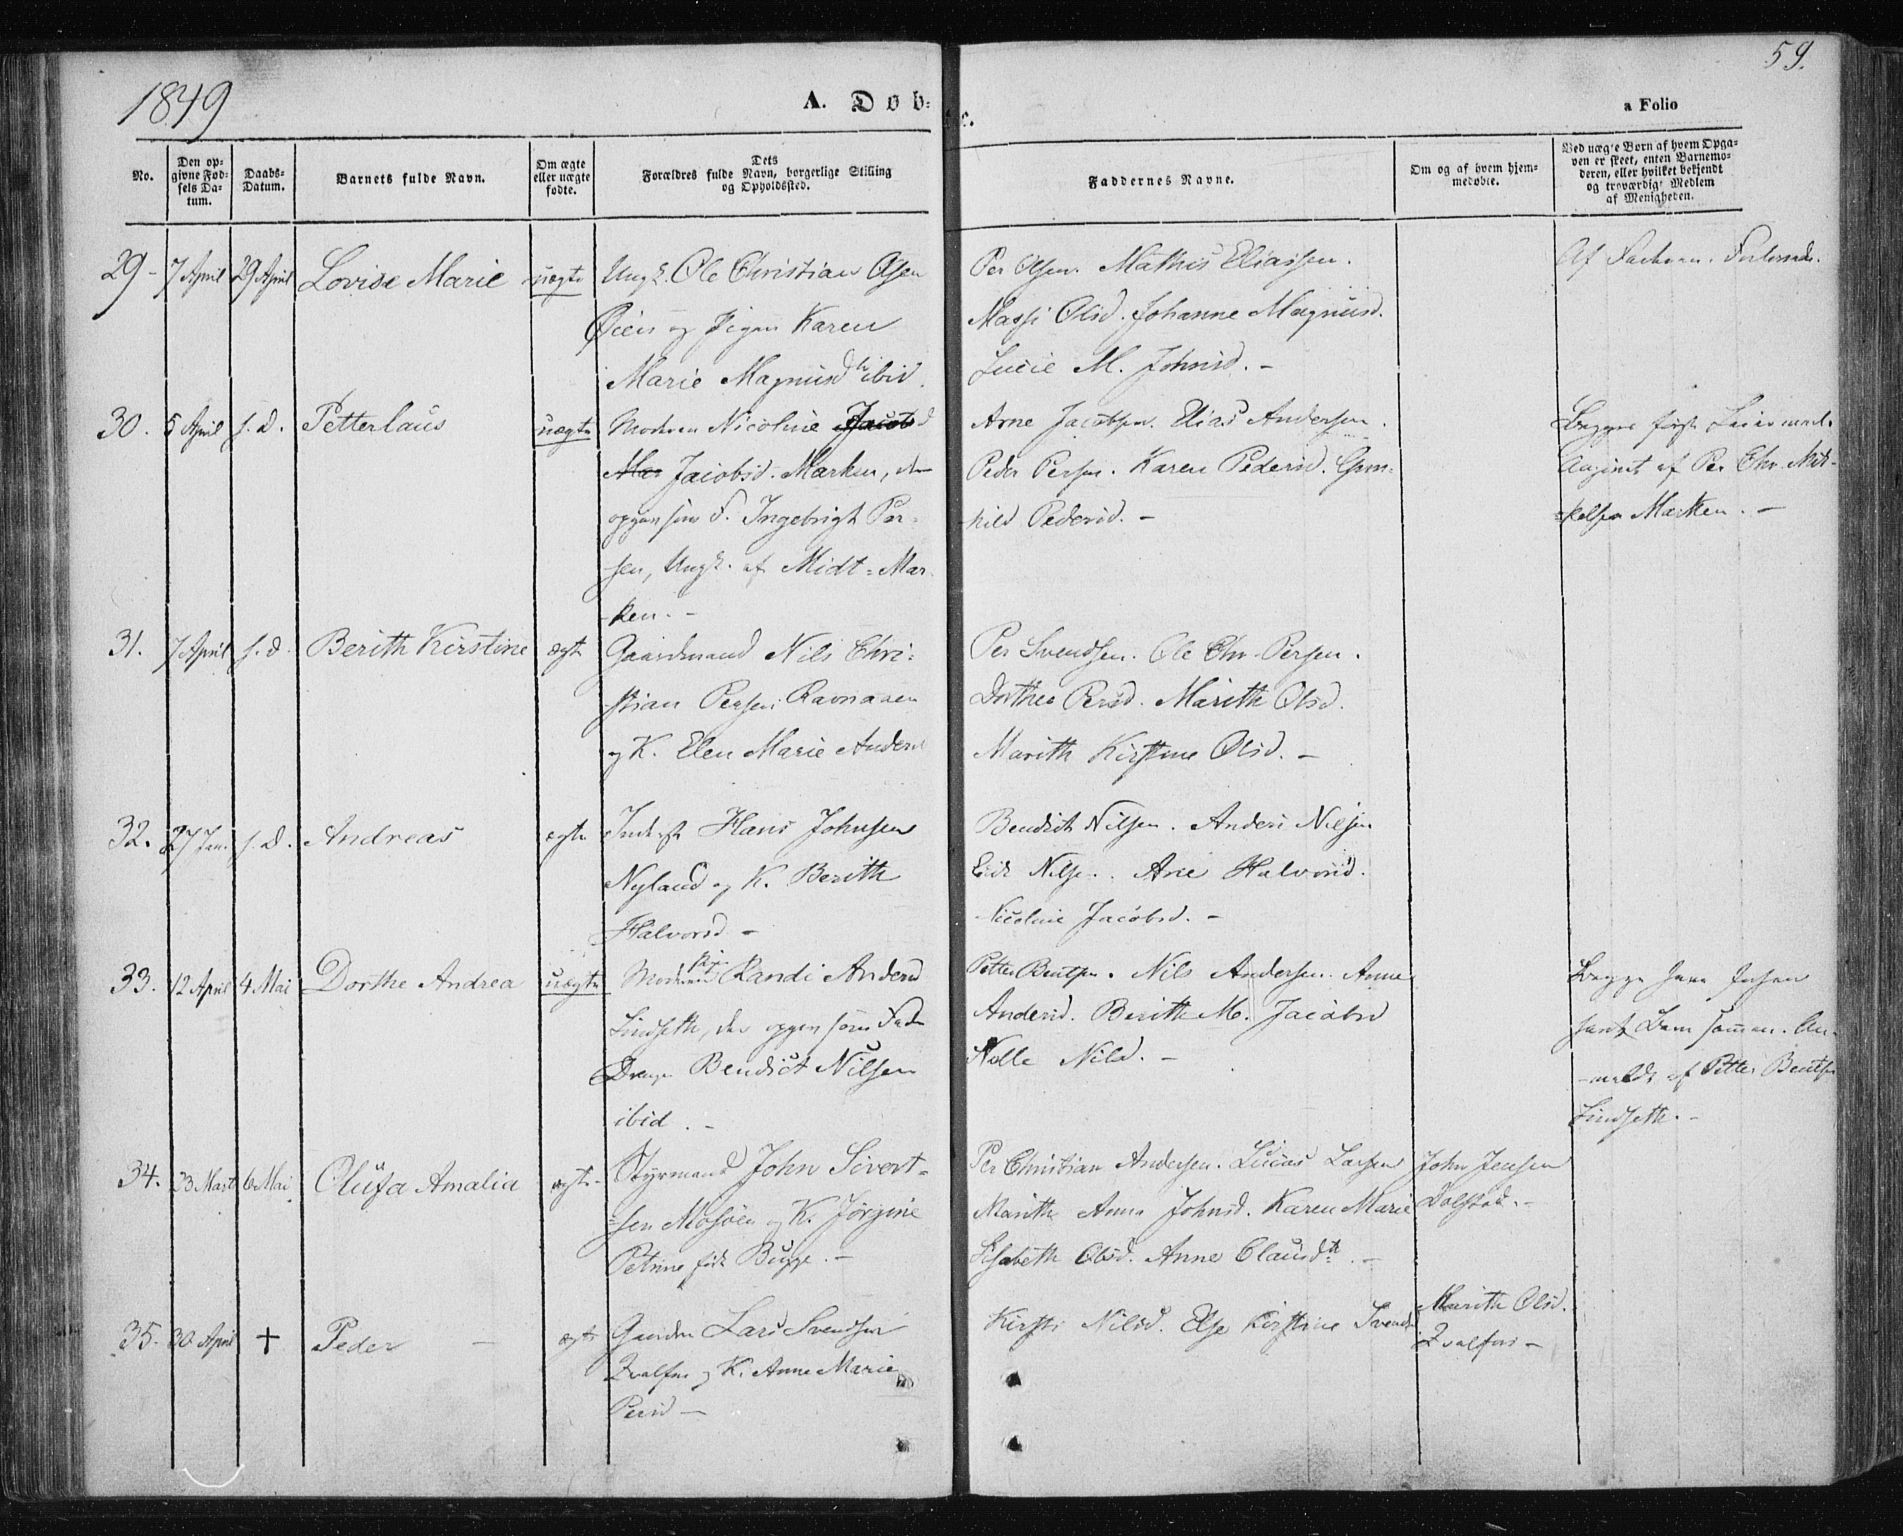 1849
A. Døb-
te.
59.
a Folio
No.
Den op-
givne Fød-
sels Da-
tum.
Daabs-
Datum.
Barnets fulde Navn.
Om ægte
eller uægte
fødte.
Dets
Forældres fulde Navn, borgerlige Stilling
og Opholdssted.
Faddernes Navne.
Om og af hvem hjem-
medøbte.
Ved uægte Børn af hvem Opga-
ven er skeet, enten Barnemo-
deren, eller hvilket bekjendt
og troværdigt Medlem
af Menigheden.
29- 7 April 29 April Lovise Marie uægte
Ungk. Ole Christian Olsen
Øien og Pigen Karen
Marie Magnusd ibid.
Per Olsen. Mathis Eliassen.
Massi Olsd. Johanne Magnusd.
Lucie M. Johnsd. -
Af Faderen.
30. 5 April s. D. Petterlaus uægte
Moderen Nicoline Jacobsd
Jacobsd. Marken,
opgav som F. Ingebrigt Per-
sen, Ungk. af Midt-Mar-
ken. -
Arne Jacobsen. Elias Andersen.
Peder Persen. Karen Pedersd. Gun-
hild Pedersd. -
Begges første Leiermaal.
Angivet af Per Chr. Mik-
kelsen Marken. -
31. 7 April s. d. Berith Kirstine ægte
Gaardmand Nils Chri-
stian Persen Ravnaaen
og K. Elen Marie Andersd
Per Svendsen. Ole Chr. Persen.
Dorthea Persd. Marith Olsd.
Marith Kirstine Olsd. -
32. 27 Jan. s. D. Andreas ægte
Inderst Hans Johnsen
Nyland og K. Berith
Halvorsd -
Bendict Nilsen. Anders Nilsen
Nilsen. Ane Halvorsd.
Nicoline Jacobsd. -
33. 12 April 4 Mai Dorthe Andrea uægte
Moderen Randi Andersd
Lindseth, der opgav som Fader
Dreng Bendict Nilsen
ibid. -
Petter Bentsen. Nils Andersen. Anne
Andersd. Berith M. Jacobsd
Nilsd. -
Begge have forhen
havt Barn sammen. An-
meldt af Petter Bentsen
Lindseth. -
34. 23 Marts 6 Mai Olufa Amalia ægte
Styrmand John Sivert-
sen Mosøen og K. Jørgine
Petrine født Bugge. -
Per Christian Andersen. Lucas Larsen
Marith Anna Johnsd. Karen Marie
Elisabeth Olsd. Anne Clausd. -
John Jensen
Dolstad. -
35. 30 April + Peder - ægte
Gaardm Lars Svendsen
og K. Anne Marie
Persd -
Kirsti Nilsd. Else Kirstine Svendsd
Marith Olsd.